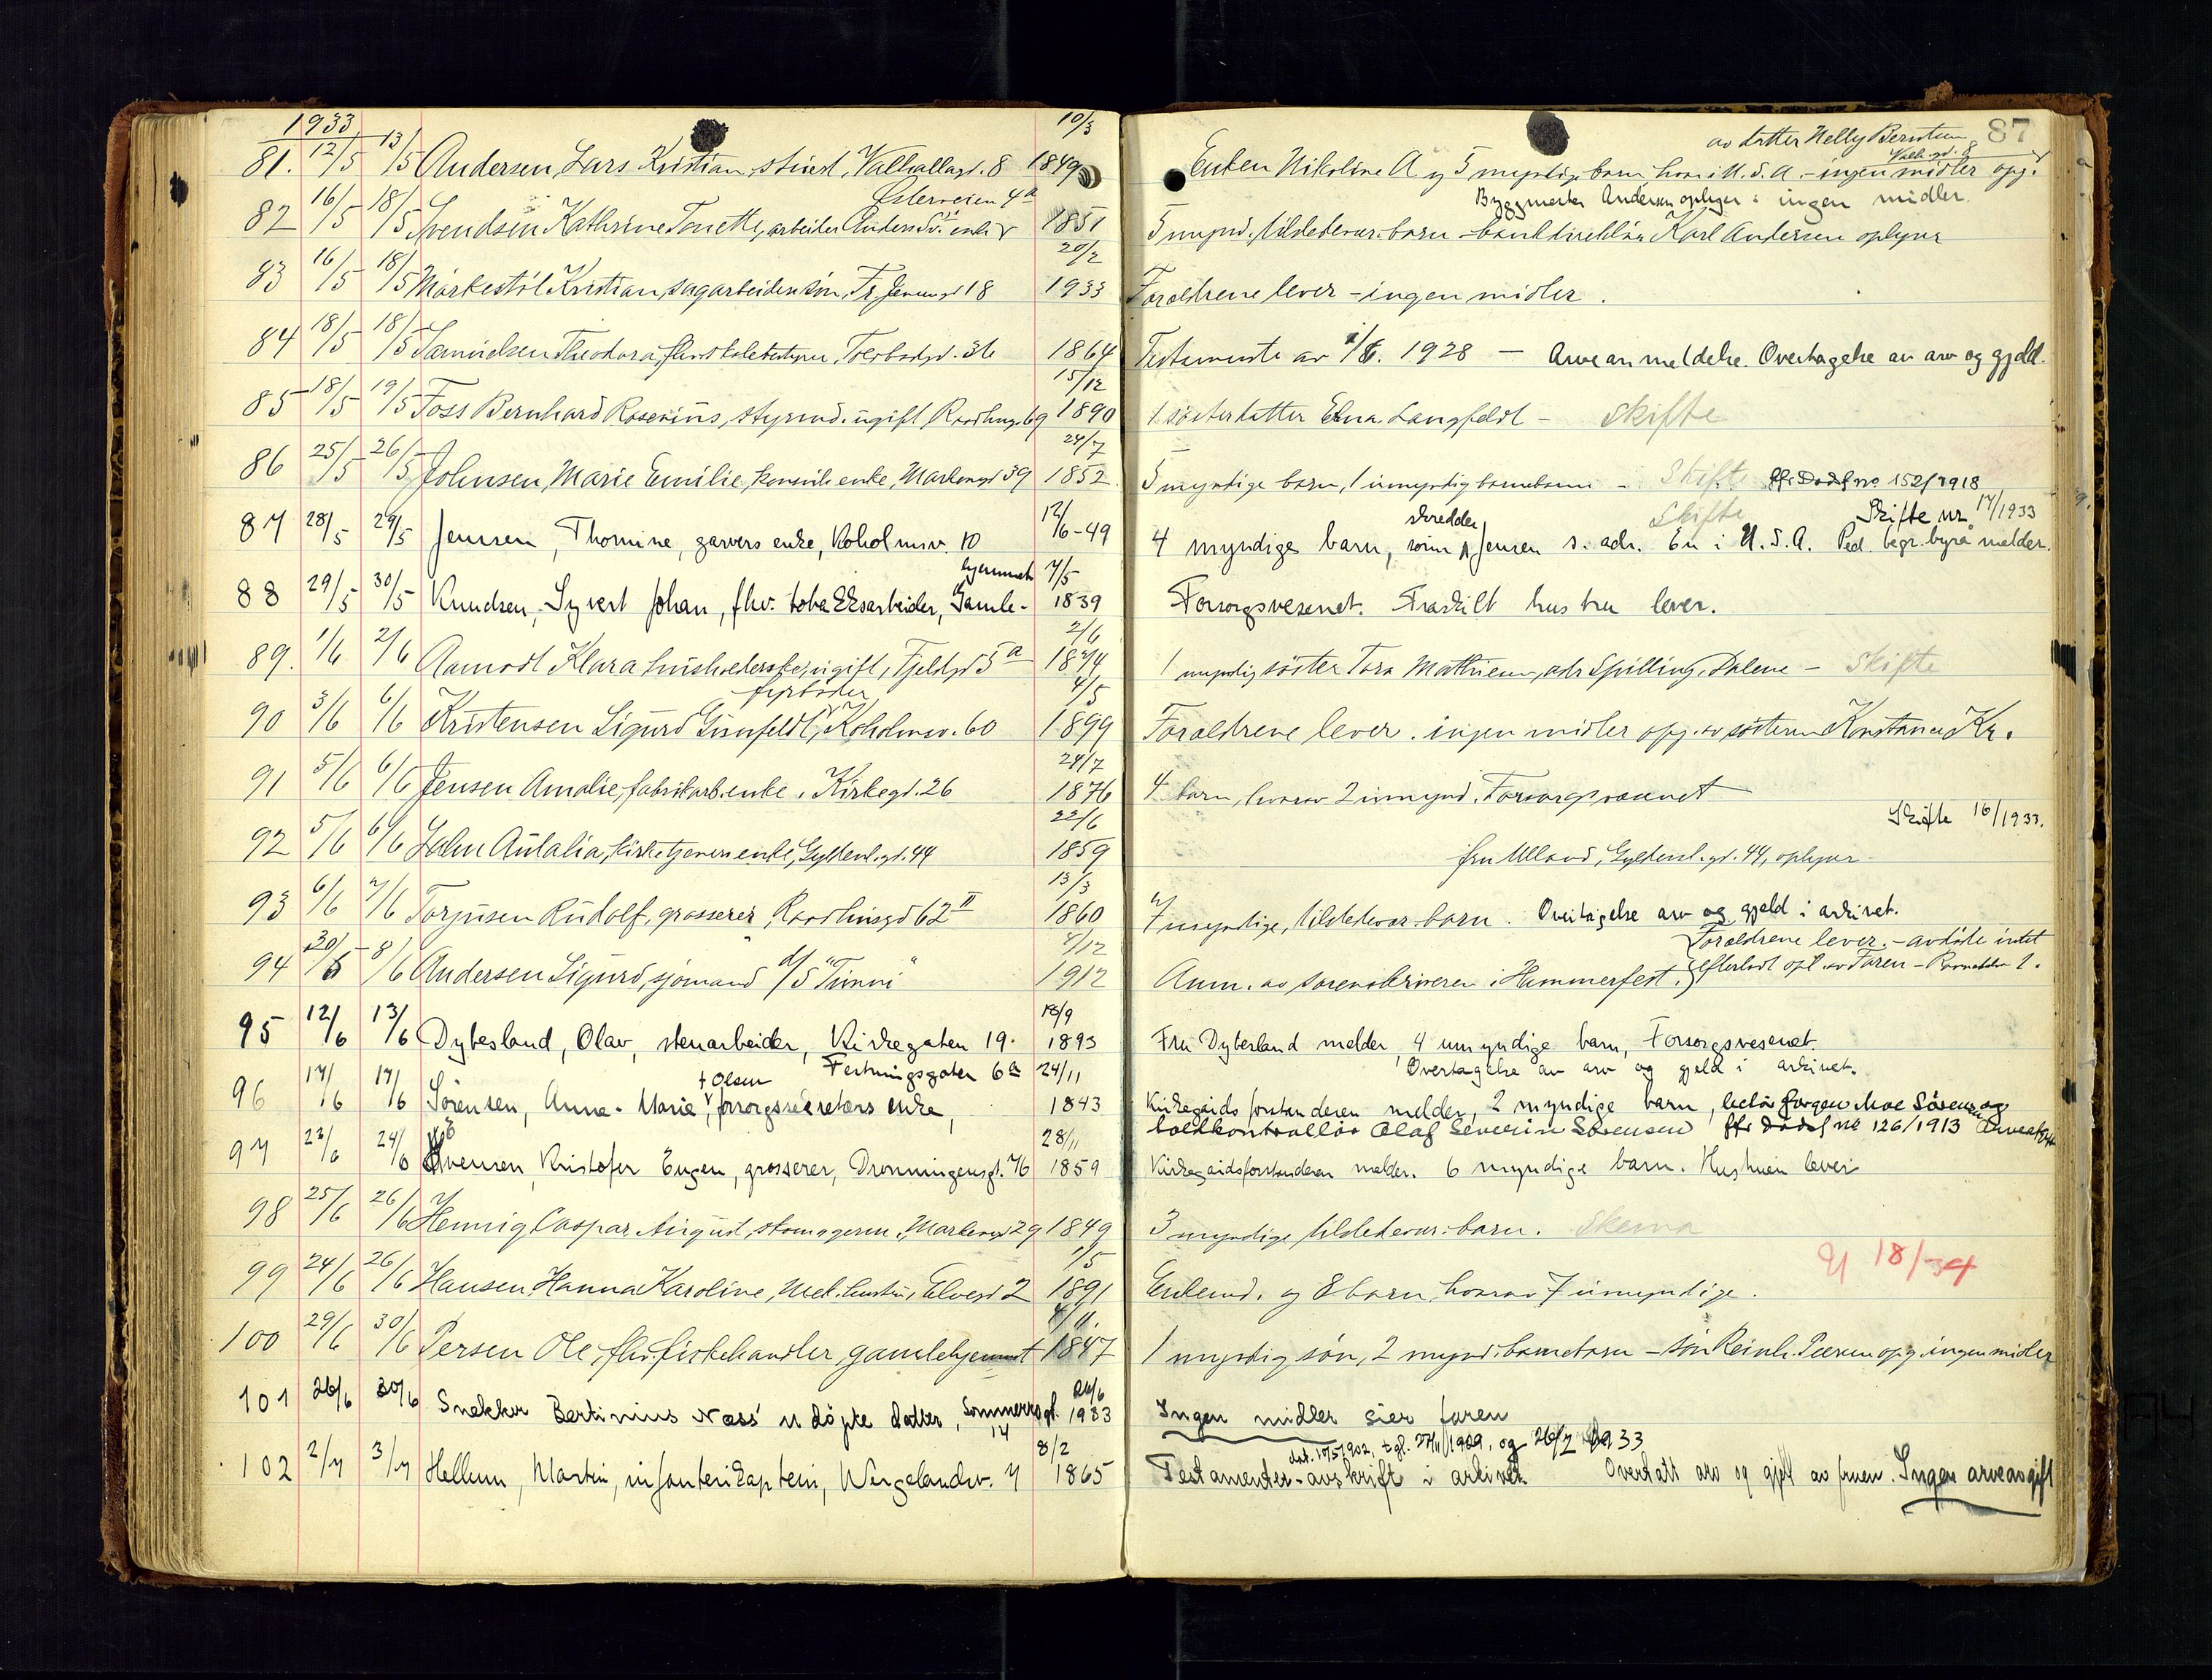 1933
87
81. 12/5 13/5 Andersen, Lars Kristian, stuert, Valhallagt. 8 10/3 1849
Enken Nikoline A og 5 myndige barn hvorav i U.S.A. - ingen midler opg.
av datter Nelly Berntsen Valh.gt. 8
82 16/5 18/5 Svendsen Kathrine Tonette, arbeider Anders S.' enke Østerveien 4a 1851
5 mynd. tilstedevær. barn - bankdirektør Karl Andersen oplyser
Byggmester Andersen oplyser: ingen midler.
83 16/5 18/5 Markestøl Kristian, sagarbeiders søn, Fr. Jensensgt 18 20/2 1933
Foreldrene lever - ingen midler.
84 18/5 18/5 Samuelsen Theodora, fhv. skolebestyrer, Toldbodgt. 36 1864
Testamente av 1/6. 1928 - Arveanmeldelse. Overtagelse av arv og gjeld.
85 18/5 19/5 Foss Bernhard Rosenius, styrmd. ugift, Raadhusgt 69 15/12 1890
1 søsterdatter Edna Langfeldt - Skifte
86 25/5 26/5 Johnsen, Marie Emilie, konsuls enke, Markensgt 39 24/7 1852.
5 myndige barn, 1 umyndig barnebarn - Skifte jfr. Dødsf no 152/1918
87 28/5 29/5 Jensen, Thomine, garvers enke, Koholmsv. 10 12/6-49
4 myndige barn, sønn skredder Jensen s. adr. En i U.S.A. Ped. begr.byrå melder.
Skifte Skifte nr 17/1933
88 29/5 30/5 Knudsen, Syvert Johan, fhv. tobakksarbeider, Gamle-hjemmet 7/5 1839
Forsorgsvesenet. Fraskilt hustru lever.
89. 1/6 2/6 Aamodt Klara husholderske, ugift, Fjeldgt 5a 2/6 1874
1 myndig søster Tora Mathiesen, adr Spilling, Dalene - Skifte
90 3/6 6/6 Kristensen Sigurd Gunfeldt, fyrbøder Koholmsv. 60 4/5 1899
Foreldrene lever. ingen midler opg. av søsteren Konstance Kr.
91 5/6 6/6 Jensen Amalie, fabrikarb. enke, Kirkegt. 26 24/7 1876
4 barn, hvorav 2 umynd. Forsorgsvesenet
92 5/6 6/6 Zahn Aulalia, kirketjeners enke, Gyldenl.gt. 44 22/6 1859
fru Ulland, Gyldenl.gt. 44, oplyser
Skifte 16/1933.
93 6/6 7/6 Torjusen Rudolf, grosserer, Raadhusgt 62 II 13/3 1860
7 myndige, tilstedevær. barn. Overtagelse arv og gjeld i arkivet.
94 20/5 8/6 Andersen Sigurd, sjømand d/s "Tunni" 4/12 1912
Anm. av sorenskriveren i Hammerfest. Foreldrene lever. - avdøde intet
efterlodt opl. av Faren -
95 12/6 13/6 Dybesland, Olav, stenarbeider, Kirkegaten 19. 18/9 1893
Fru Dybesland melder, 4 umyndige barn, Forsorgsvesenet.
96 17/6 17/6 Sørensen, Anna-Marie f Olsen, forsorgssekretærs enke, Festningsgaten 6a 24/11 1843
Overtagelse av arv og gjeld i arkivet.
Kirkegaardsforstanderen melder, 2 myndige barn, lektor Jørgen Moe Sørensen og
tollkontrollør Olaf Severin Sørensen jfr Dødsf no 126/1913 Arveavgift
97 23/6 24/6 Evensen, Kristofer Eugen, grosserer, Dronningensgt. 76 28/11 1859
Kirkegaardsforstanderen melder. 6 myndige barn. Hustruen lever
98 25/6 26/6 Hennig Caspar August, skomagerm., Markensgt 29 1849
3 myndige tilstedevær. barn. Skema
99 24/6 26/6 Hansen, Hanna Karoline, mek. hustru, Elvegt 2 1/5 1891
Enkemd. og 8 barn hvorav 7 umyndige.
U 18/34
100 29/6 30/6 Persen Ole, fhv. fiskehandler, gamlehjemmet 4/11. 1847
1 myndig søn, 2 mynd. barnebarn - søn Reinh. Persen opg. ingen midler
101 26/6 30/6 Snekker Bertinius Næss' udøpte datter, Sommerrogt. 14 26/6 1933
Ingen midler sier faren
102 2/7 3/7 Hellum, Martin, infanterikaptein, Wergelandsv. 7 8/2 1865
dat. 10/5 1902, tgl. 27/11 1909, og 26/7 1933
Testamenter - avskrift i arkivet. Overtatt arv og gjeld av fruen. Ingen arveavgift